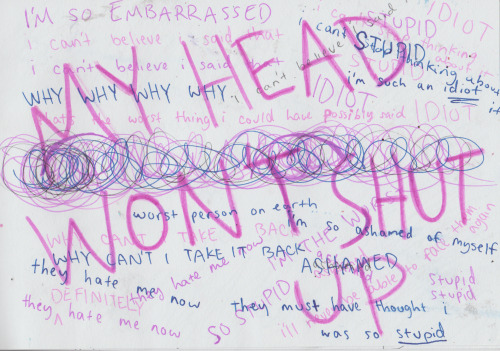 I'M SO EMBARRASSED
i can't believe i said that
i can't believe i said that
WHY WHY WHY WHY
that's the worst thing i could have possibly said
i can't believe i said
i can't STUPID IDIOT
STUPID
stop thinking about it
i'm such an idiot
IDIOT
IDIOT
MY HEAD
WON'T SHUT
UP
worst person on earth
i'm so ashamed of myself
WHY CAN'T I TAKE IT BACK
WHY CANT I TAKE IT BACK
ASHAMED
they hate me now
they hate me now
DEFINITELY
they ^ hate me now
SO STUPID
i'll never be able to face them again
stupid
stupid
they must have thought i
was so stupid